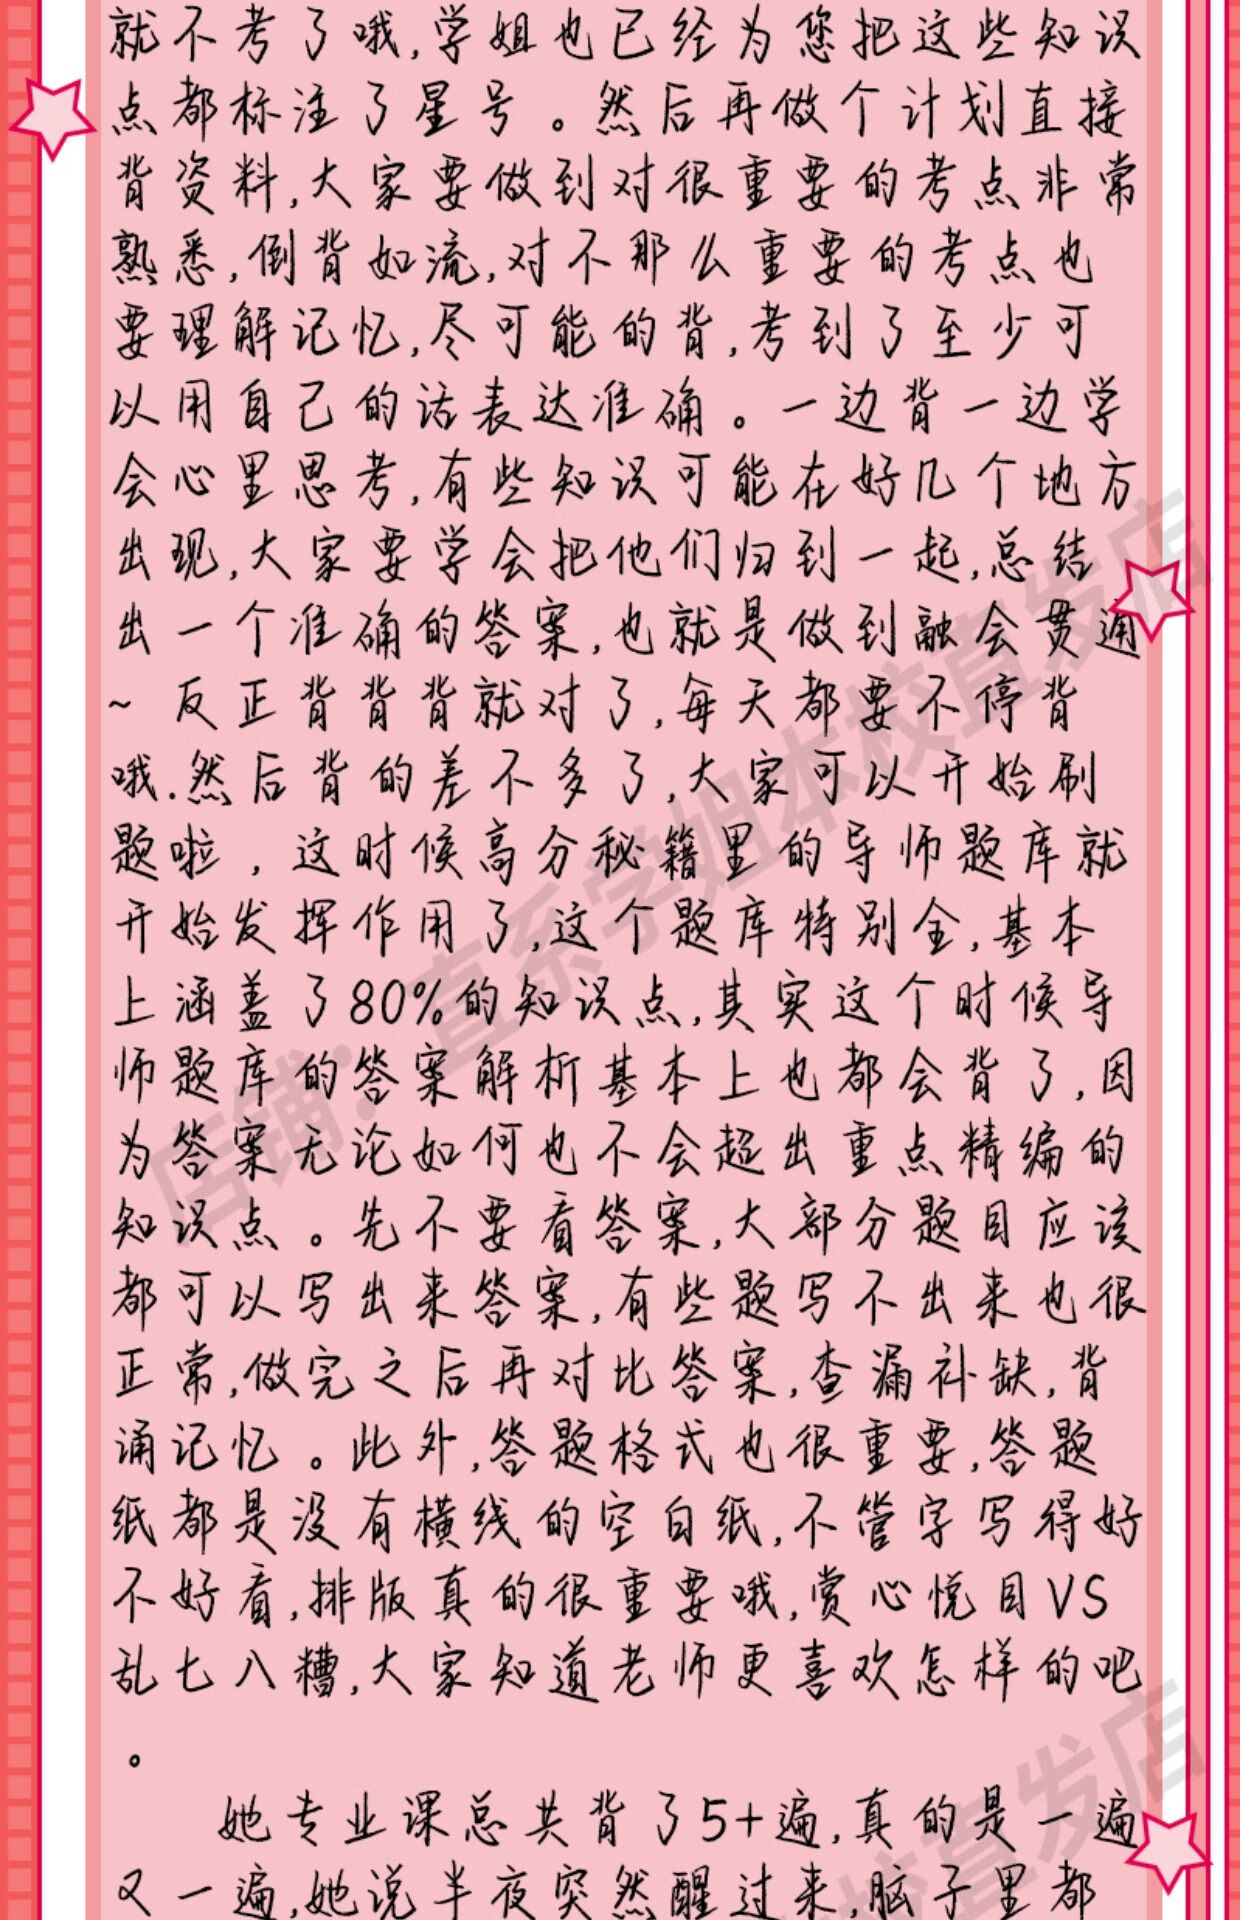 就不考了哦,学姐也已经为您把这些知识
点都标注了星号。然后再做个计划直接
背资料,大家要做到对很重要的考点非常
熟悉,倒背如流,对不那么重要的考点也
要理解记忆,尽可能的背,考到了至少可
以用自己的话表达准确。一边背一边学
会心里思考,有些知识可能在好几个地方
出现,大家要学会把他们归到一起,总结
出一个准确的答案,也就是做到融会贯通
~反正背背背就对了,每天都要不停背
哦.然后背的差不多了,大家可以开始刷
题啦，这时候高分秘籍里的导师题库就
开始发挥作用了,这个题库特别全,基本
上涵盖了80%的知识点,其实这个时候导
师题库的答案解析基本上也都会背了,因
为答案无论如何也不会超出重点精编的
知识点。先不要看答案,大部分题目应该
都可以写出来答案,有些题写不出来也很
正常,做完之后再对比答案,查漏补缺,背
诵记忆。此外,答题格式也很重要,答题
纸都是没有横线的空白纸,不管字写得好
不好看,排版真的很重要哦,赏心悦目VS
乱七八糟,大家知道老师更喜欢怎样的吧
。
她专业课总共背了5+遍,真的是一遍
又一遍,她说半夜突然醒过来,脑子里都
店铺：直系学姐本校直发店
校直发店